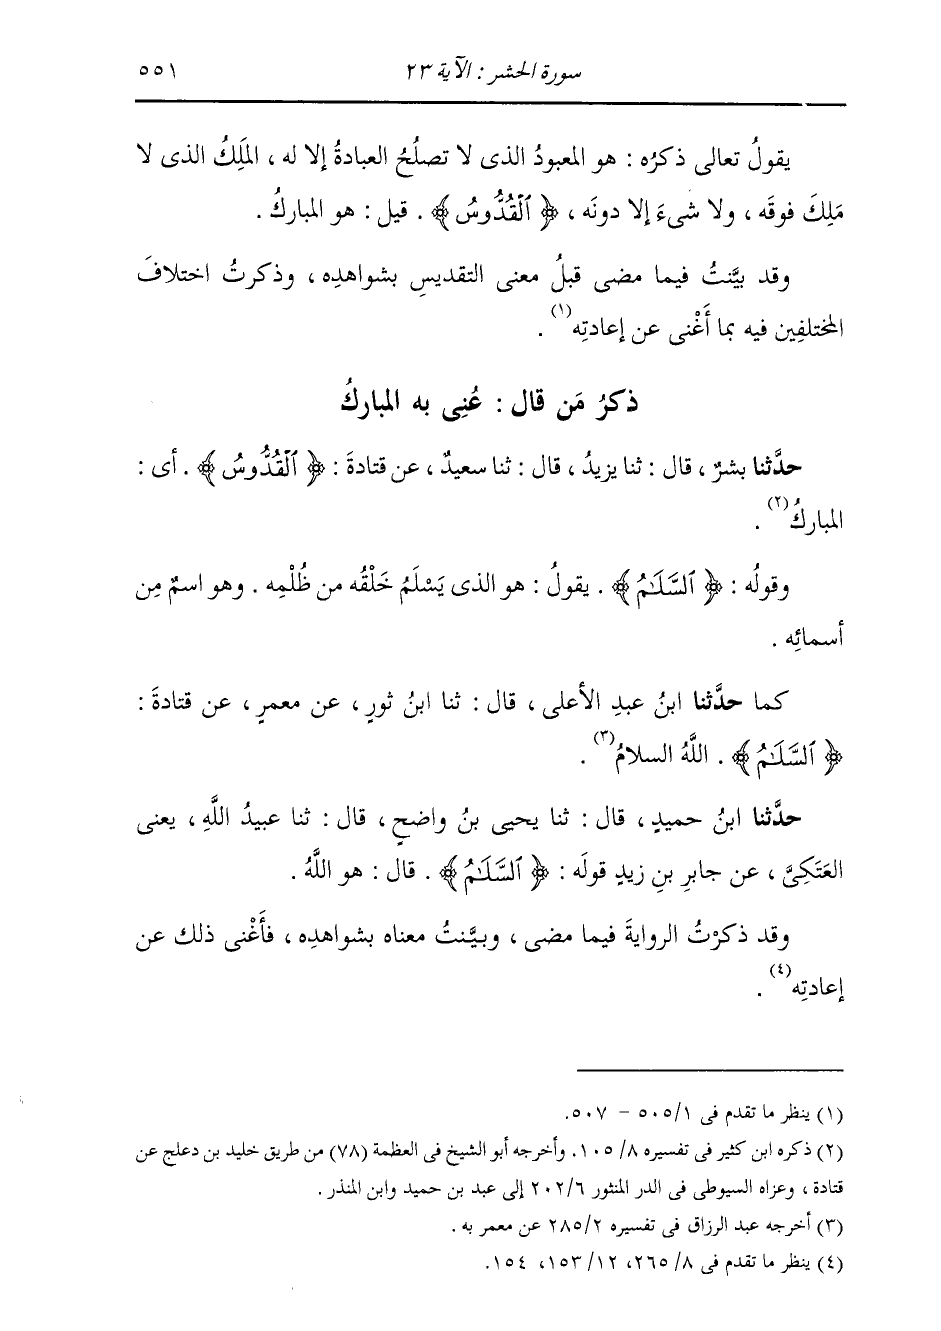 سورة الحشر : الآية ٢٣ ٥٥١
يقولُ تعالى ذكرُه : هو المعبودُ الذى لا تصلُحُ العبادةُ إلا له ، المَلِكُ الذى لا
مَلِكَ فوقَه ، ولا شىءَ إلا دونَه ، ﴿ ٱلْقُدُّوسُ ﴾ . قيل : هو المباركُ .
وقد بيَّنتُ فيما مضى قبلُ معنى التقديسِ بشواهدِه ، وذكرتُ اختلافَ
المختلفِين فيه بما أَغْنى عن إعادتِه(١) .
ذكرُ مَن قال : عُنِى به المباركُ
حدَّثنا بشرٌ ، قال : ثنا يزيدُ ، قال : ثنا سعيدٌ ، عن قتادةَ : ﴿ ٱلْقُدُّوسُ ﴾ . أى :
المباركُ(٢) .
وقولُه : ﴿ ٱلسَّلَٰمُ ﴾ . يقولُ : هو الذى يَسْلَمُ خَلْقُه من ظُلْمِه . وهو اسمٌ مِن
أسمائِه .
كما حدَّثنا ابنُ عبدِ الأعلى ، قال : ثنا ابنُ ثورٍ ، عن معمرٍ ، عن قتادةَ :
﴿ ٱلسَّلَٰمُ ﴾ . اللَّهُ السلامُ(٣) .
حدَّثنا ابنُ حميدٍ ، قال : ثنا يحيى بنُ واضحٍ ، قال : ثنا عبيدُ اللَّهِ ، يعنى
العَتَكِىَّ ، عن جابرِ بنِ زيدٍ قولَه : ﴿ ٱلسَّلَٰمُ ﴾ . قال : هو اللَّهُ .
وقد ذكرْتُ الروايةَ فيما مضى ، وبيَّنتُ معناه بشواهدِه ، فأَغْنى ذلك عن
إعادتِه(٤) .
(١) ينظر ما تقدم فى ٥٠٥/١ – ٥٠٧.
(٢) ذكره ابن كثير فى تفسيره ٨/ ١٠٥. وأخرجه أبو الشيخ فى العظمة (٧٨) من طريق خليد بن دعلج عن
قتادة ، وعزاه السيوطى فى الدر المنثور ٢٠٢/٦ إلى عبد بن حميد وابن المنذر .
(٣) أخرجه عبد الرزاق فى تفسيره ٢٨٥/٢ عن معمر به .
(٤) ينظر ما تقدم فى ٨/ ٢٦٥، ١٢/ ١٥٣، ١٥٤.